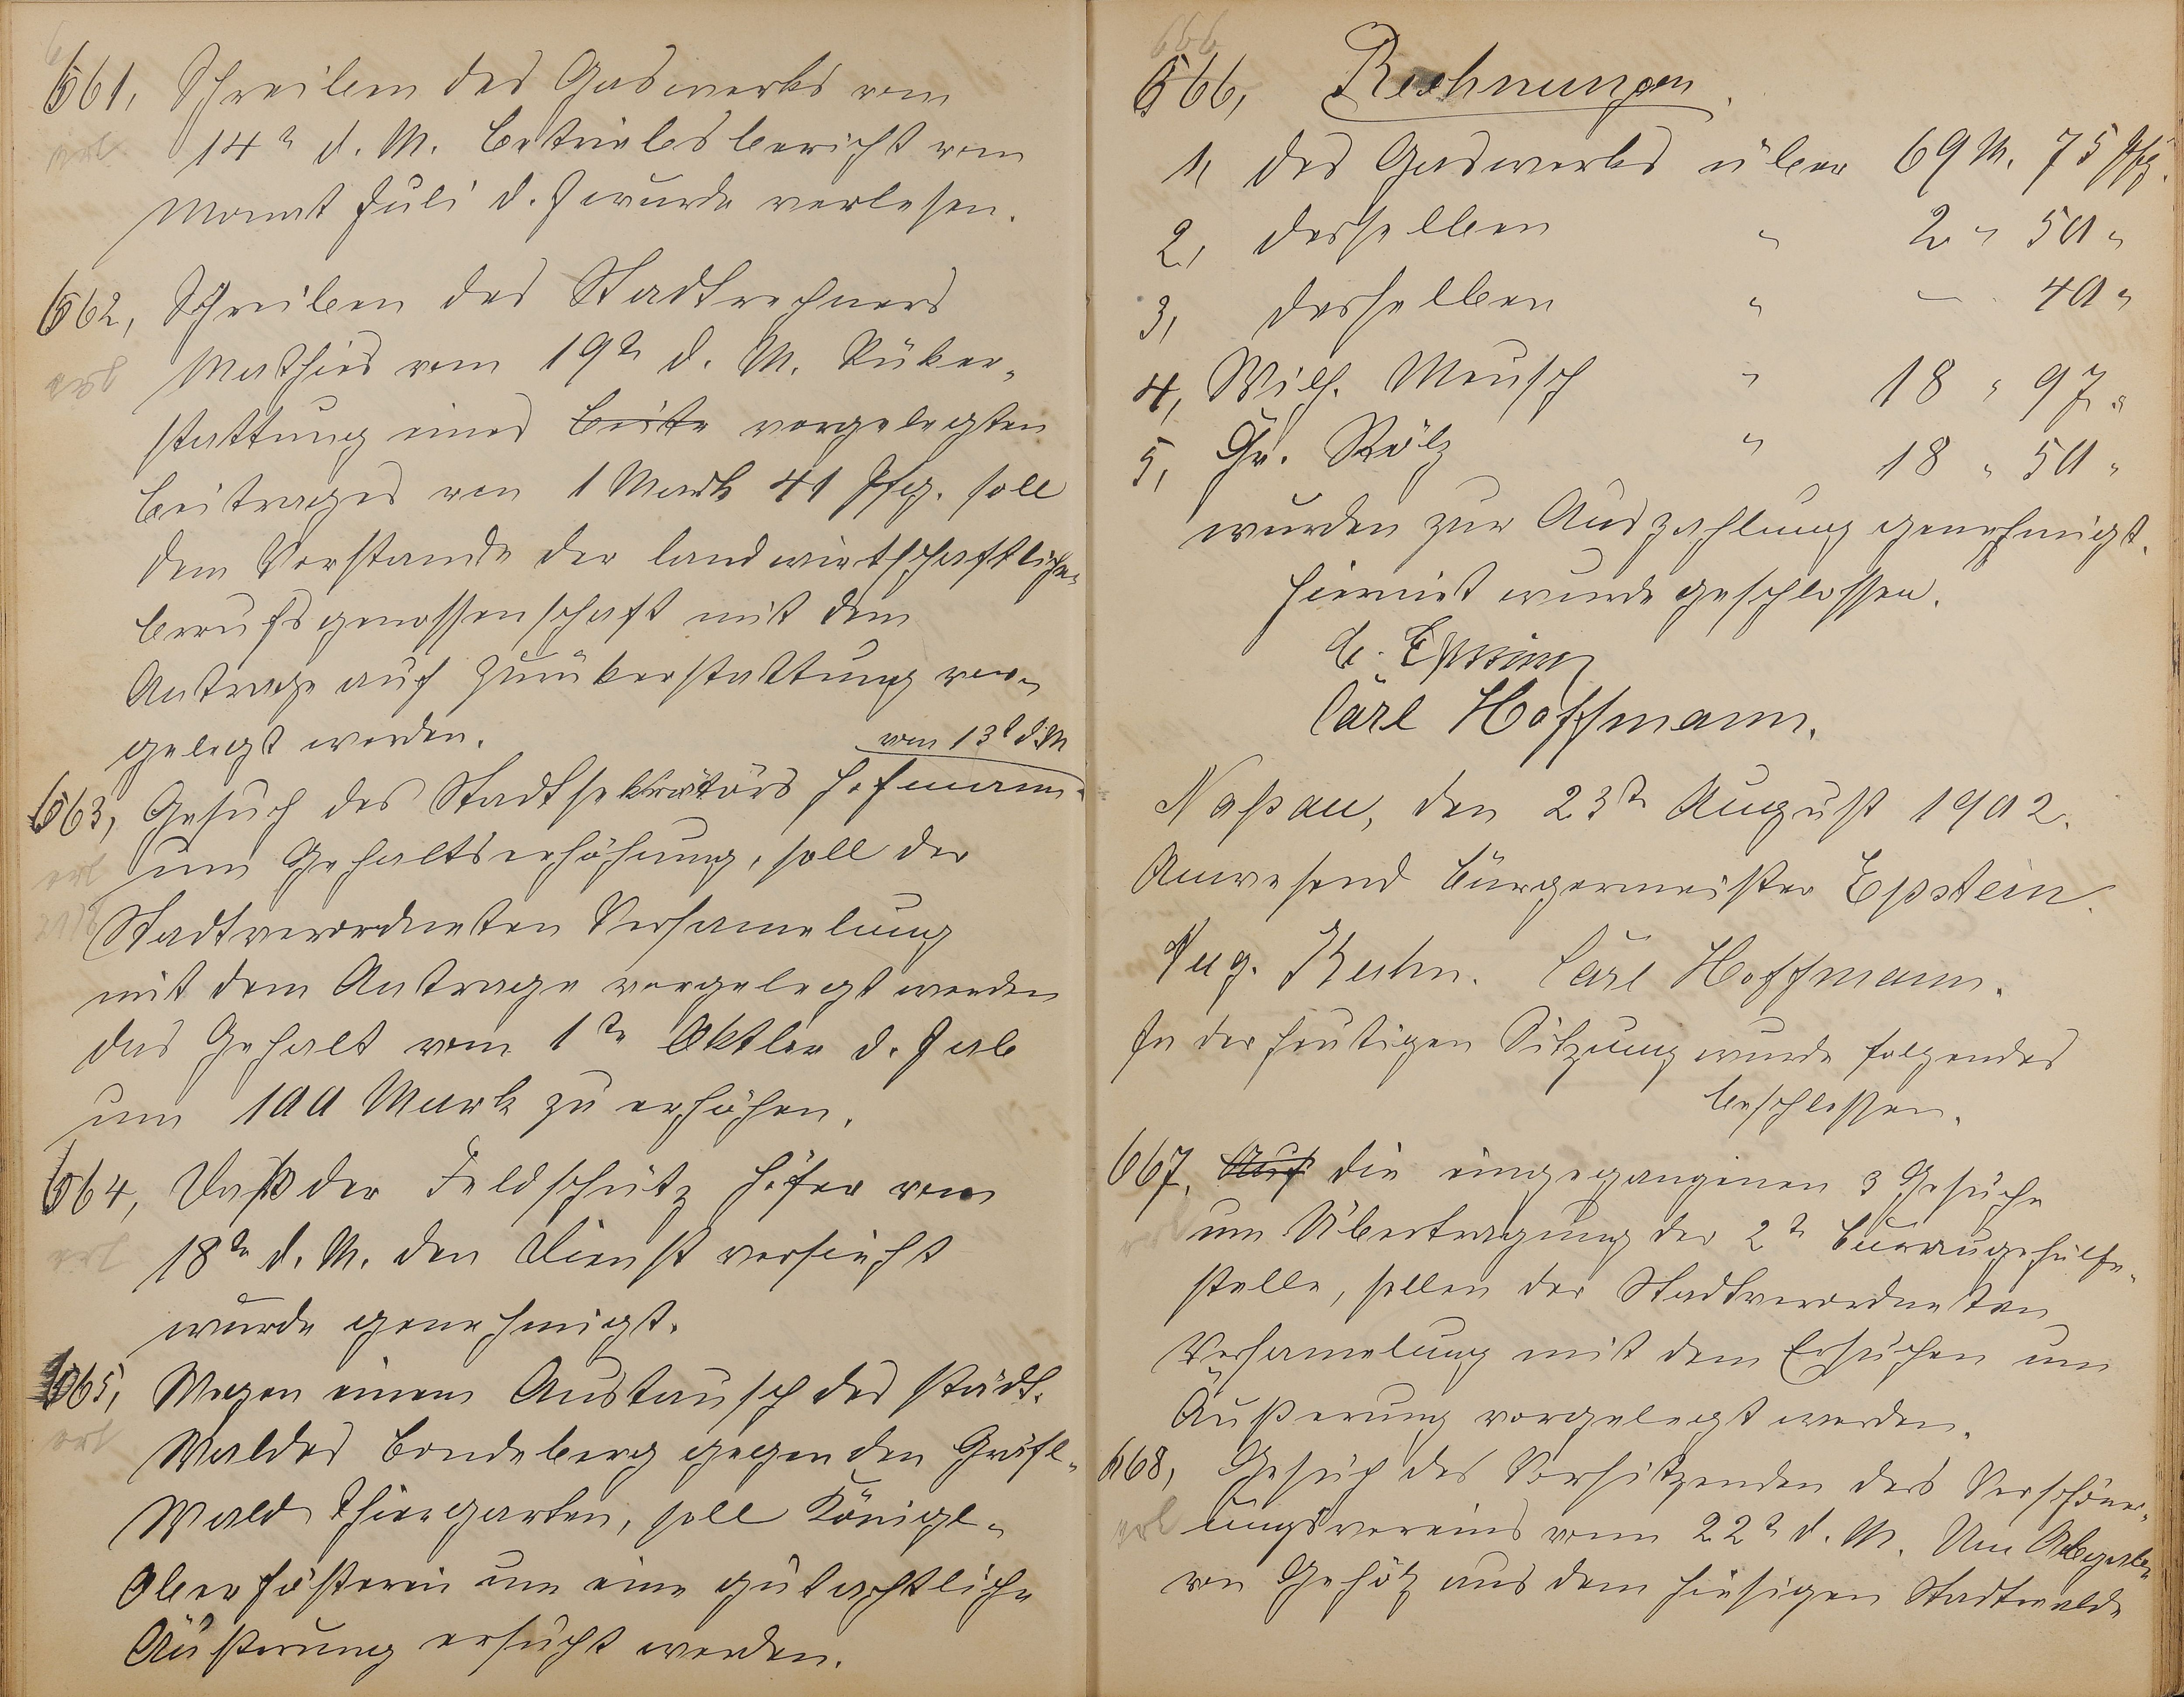 661, Schreiben des Gaswerks vom
erl.
14t d. M. Betriebsbericht vom
Monat Juli d. J wurde verlesen.
662, Schreiben des Stadtrechners
erl
Mathies vom 19ten d. M. Rüker-
stattung eines vorgelegten
Beitrages von 1 Mark 41 Pfg. soll
dem Vorstande der landwirthschaftliche-
Berufsgenossenschaft mit dem
Antrage auf Zurükerstattung vor-
gelegt werden.
vom 13t d. M
663, Gesuch des Stadtsekretärs Hofmann
erl
um Gehaltserhöhung, soll der
Stadtverordneten Versamelung
mit dem Antrage vorgelegt werden
das Gehalt vom 1ten Oktber d. J ab
um 100 Mark zu erhöhen.
664, Daß der Feldschütz Höfer vom
erl
18ten d. M. den Dienst versieht
wurde genehmigt.
665, Wegen einem Austausch des städt.
erl
Waldes Bondeberg gegen den Gräfl.
Wald Thiergarten, soll Königl.
Oberfösterei um eine gutachtliche
Äußerung ersucht werden.
666
666, Rechnungen.
1, des Gaswerks über 69 M. 75 Pfg.
2, desselben " 2 " 50 "
3, desselben " — 40 "
4, Wilh. Meusch " 18 " 97 "
5, Chr. Rölz " 18 " 50 "
wurden zur Auszahlung genehmigt.
Hiermit wurde geschlossen.
Carl Hoffmann.
Naßau, den 23ten August 1902.
Anwesend Bürgermeister Epstein.
Aug. Kuhn. Carl Hoffmann.
In der heutigen Sitzung wurde folgendes
beschlossen.
667, Auf die eingegangenen 3 Gesuche
um Übertragung der 2t Bureaugehülfe-
stelle, sollen der Stadtverordneten
Versamelung mit dem Ersuchen um
Äußerung vorgelegt werden.
668, Gesuch des Vorsitzenden des Verschöner-
erl
ungsvereins vom 22t d. M. Um Abgabe
von Gehölz aus dem hiesigen Stadtwalde